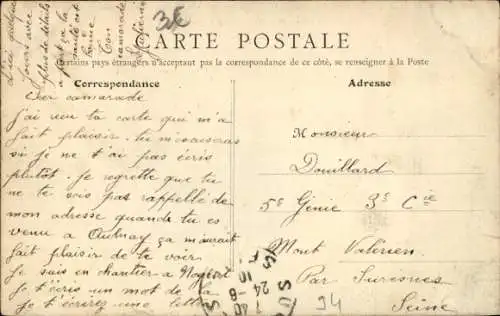 3E
CARTE POSTALE
Certains pays étrangers n'acceptant pas la correspondance de ce côté, se renseigner à la Poste
Correspondance
Adresse
camarade
j'ai reçu ta carte qui m'a
fait plaisir. tu m'excuseras
si je ne t'ai pas écris
plutôt. je regrette que tu
ne te sois pas rappellé de
mon adresse quando tu es
venu a Aulnay ça m'aurait
fait plaisir de te voir
je suis en chantier a Nogent
je t'écris un mot de la
je t'écrirez une lettre
plus de détails
a part ça la
santé est
bonne
Ton
camarade
Monsieur
Douillard
5e Génie 3e Cie
Mont Valérien
Par Suresnes
Seine
94